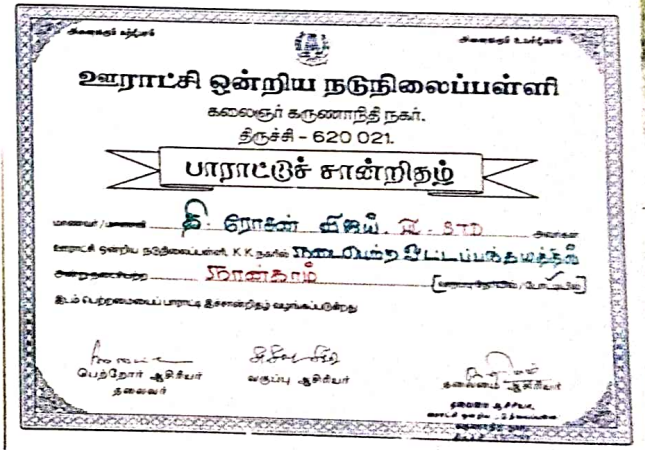 அனைவரும் கற்போம் அனைவரும் உயர்வோம்
ஊராட்சி ஒன்றிய நடுநிலைப்பள்ளி
கலைஞர் கருணாநிதி நகர்.
திருச்சி - 620 021.
பாராட்டுச் சான்றிதழ்
மாணவர் / மாணவி தி. ரோசன் விஜய். STD அவர்கள்
ஊராட்சி ஒன்றிய நடுநிலைப்பள்ளி, K K நகரில் நடைபெற்ற ஓட்டப்பந்தயத்தில்
நான்காம்
இடம் பெற்றமையைப் பாராட்டி இச்சான்றிதழ் வழங்கப்படுகிறது
பெற்றோர் ஆசிரியர் வகுப்பு ஆசிரியர் தலைமை ஆசிரியர்
தலைவர்
தலைமை ஆசிரியர்,